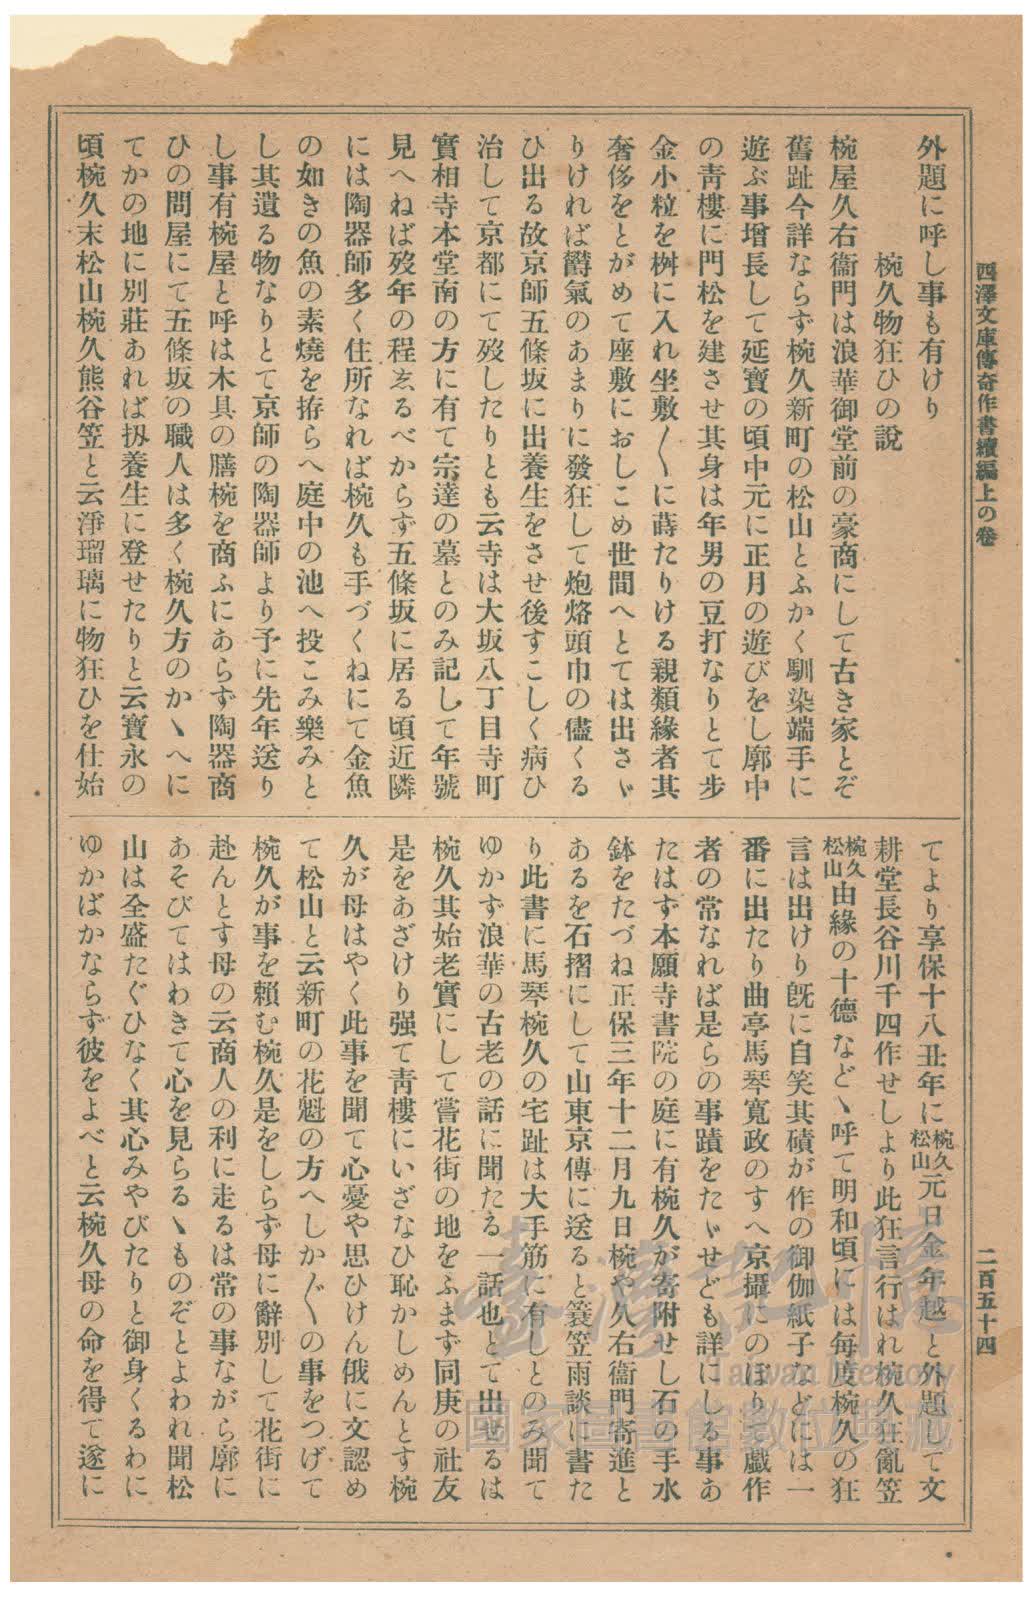 西澤文庫傳奇作書續編上の卷
二百五十四
外題に呼し事も有けり
椀久物狂ひの說
椀屋久右衞門は浪華御堂前の豪商にして古き家とぞ
舊趾今詳ならず椀久新町の松山とふかく馴染端手に
遊ぶ事增長して延寶の頃中元に正月の遊びをし廓中
の靑樓に門松を建させ其身は年男の豆打なりとて步
金小粒を桝に入れ坐敷〱に蒔たりける親類緣者其
奢侈をとがめて座敷におしこめ世間へとては出さゞ
りければ欝氣のあまりに發狂して炮烙頭巾の儘くる
ひ出る故京師五條坂に出養生をさせ後すこしく病ひ
治して京都にて歿したりとも云寺は大坂八丁目寺町
實相寺本堂南の方に有て宗達の墓とのみ記して年號
見へねば歿年の程ゑるべからず五條坂に居る頃近隣
には陶器師多く住所なれば椀久も手づくねにて金魚
の如きの魚の素燒を拵らへ庭中の池へ投こみ樂みと
し其遺る物なりとて京師の陶器師より予に先年送り
し事有椀屋と呼は木具の膳椀を商ふにあらず陶器商
ひの問屋にて五條坂の職人は多く椀久方のかゝへに
てかの地に別莊あれば扨養生に登せたりと云寶永の
頃椀久末松山椀久熊谷笠と云淨瑠璃に物狂ひを仕始
てより享保十八丑年に椀久松山元日金年越と外題して文
耕堂長谷川千四作せしより此狂言行はれ椀久狂亂笠
椀久松山由緣の十德などゝ呼て明和頃には每度椀久の狂
言は出けり旣に自笑其磧が作の御伽紙子などには一
番に出たり曲亭馬琴寬政のすへ京攝にのぼり戲作
者の常なれば是らの事蹟をたゞせども詳にしる事あ
たはず本願寺書院の庭に有椀久が寄附せし石の手水
鉢をたづね正保三年十二月九日椀や久右衞門寄進と
あるを石摺にして山東京傳に送ると簑笠雨談に書た
り此書に馬琴椀久の宅趾は大手筋に有しとのみ聞て
ゆかず浪華の古老の話に聞たる一話也とて出せるは
椀久其始老實にして嘗花街の地をふまず同庚の社友
是をあざけり强て靑樓にいざなひ恥かしめんとす椀
久が母はやく此事を聞て心憂や思ひけん俄に文認め
て松山と云新町の花魁の方へしか〲の事をつげて
椀久が事を賴む椀久是をしらず母に辭別して花街に
赴んとす母の云商人の利に走るは常の事ながら廓に
あそびてはわきて心を見らるゝものぞとよわれ聞松
山は全盛たぐひなく其心みやびたりと御身くるわに
ゆかばかならず彼をよべと云椀久母の命を得て遂に
臺灣記憶
Taiwan Memory
國家圖書館數位典藏